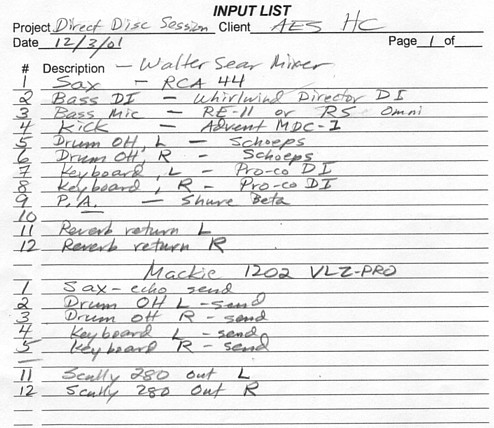 INPUT LIST
Project Direct Disc Session Client AES HC
Date 12/3/01 Page 1 of
# Description - Walter Sear Mixer
1 Sax - RCA 44
2 Bass DI - Whirlwind Director DI
3 Bass Mic - RE-11 or RS Omni
4 Kick - Advent MDC-1
5 Drum OH, L - Schoeps
6 Drum OH, R - Schoeps
7 Keyboard, L - Pro-co DI
8 Keyboard, R - Pro-co DI
9 P.A. - Shure Beta
10
11 Reverb return L
12 Reverb return R
Mackie 1202 VLZ-PRO
1 Sax - echo send
2 Drum OH L - send
3 Drum OH R - send
4 Keyboard L - send
5 Keyboard R - send
11 Scully 280 out L
12 Scully 280 out R